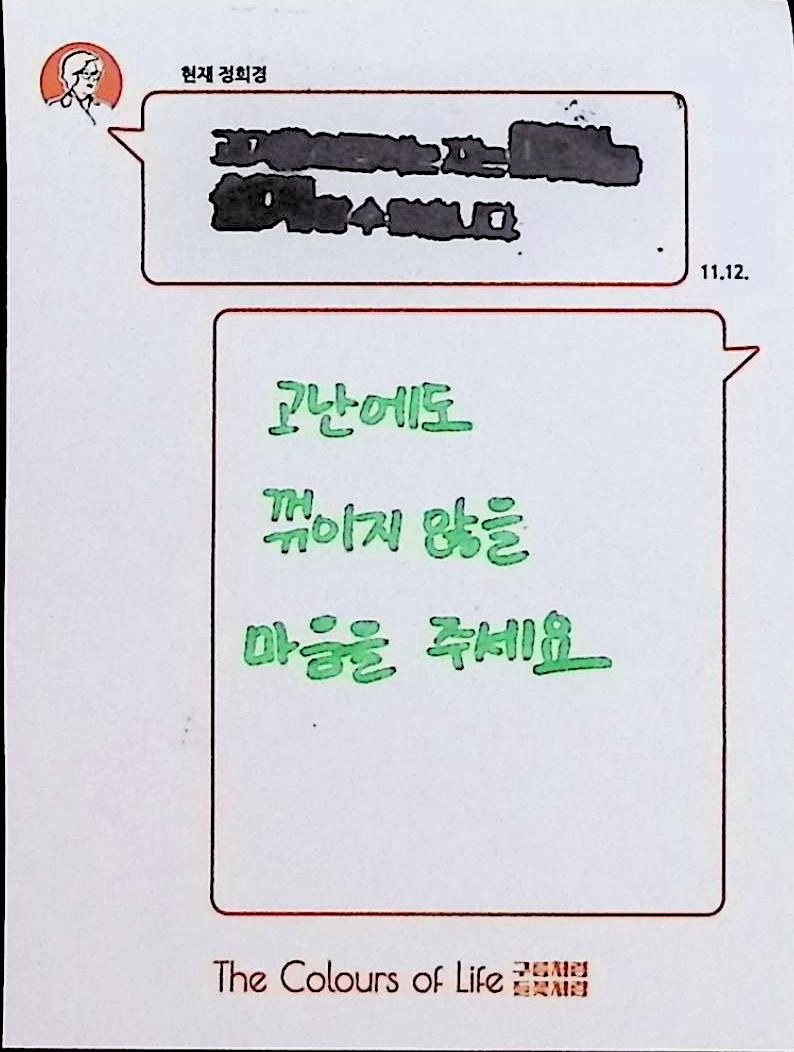 현재 정희경
11.12.
고난에도
꺾이지 않을
마음을 주세요
The Colours of Life 구름처럼
들꽃처럼